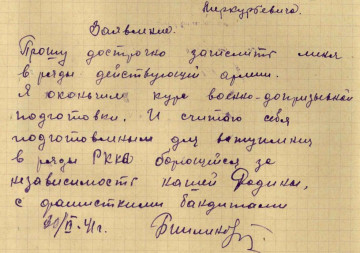 Меркурьевича.
Заявление.
Прошу досрочно зачислить меня
в ряды действующей армии.
Я окончил курс военно-допризывной
подготовки. И считаю себя
подготовленным для вступления
в ряды РККА борющейся за
независимость нашей Родины,
с фашисткими бандитами
41г.